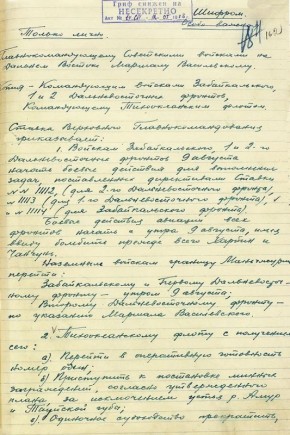 Гриф секретности снят
НЕСЕКРЕТНО
Шифром.
Только лично.
Главнокомандующему Советскими войсками на
Дальнем Востоке Маршалу Василевскому.
Командующим войсками Забайкальского,
1 и 2 Дальневосточных фронтов,
Командующему Тихоокеанским флотом.
Ставка Верховного Главнокомандования
приказывает:
1. Войскам Забайкальского, 1 и 2-го
Дальневосточных фронтов 9 августа
начать боевые действия для выполнения
задач, поставленных директивами Ставки
№№ 11112, (для 2-го Дальневосточного фронта)
11113 (для 1-го Дальневосточного фронта),
11114 (для Забайкальского фронта).
Боевые действия авиации всех
фронтов начать с утра 9 августа, имея
ввиду бомбить прежде всего Харбин и
Чанчунь.
Наземным войскам границу Маньчжурии
перейти:
Забайкальскому и Первому Дальневосточ-
ному фронту - утром 9 августа
Второму Дальневосточному фронту -
по указанию Маршала Василевского.
2. Тихоокеанскому флоту с получением
сего:
а). Перейти в оперативную готовность
номер один;
б) Приступить к постановке минных
заграждений, согласно утвержденного
плана, за исключением устья р. Амур
и Тауйская губа;
в). Одиночное судоходство прекратить,